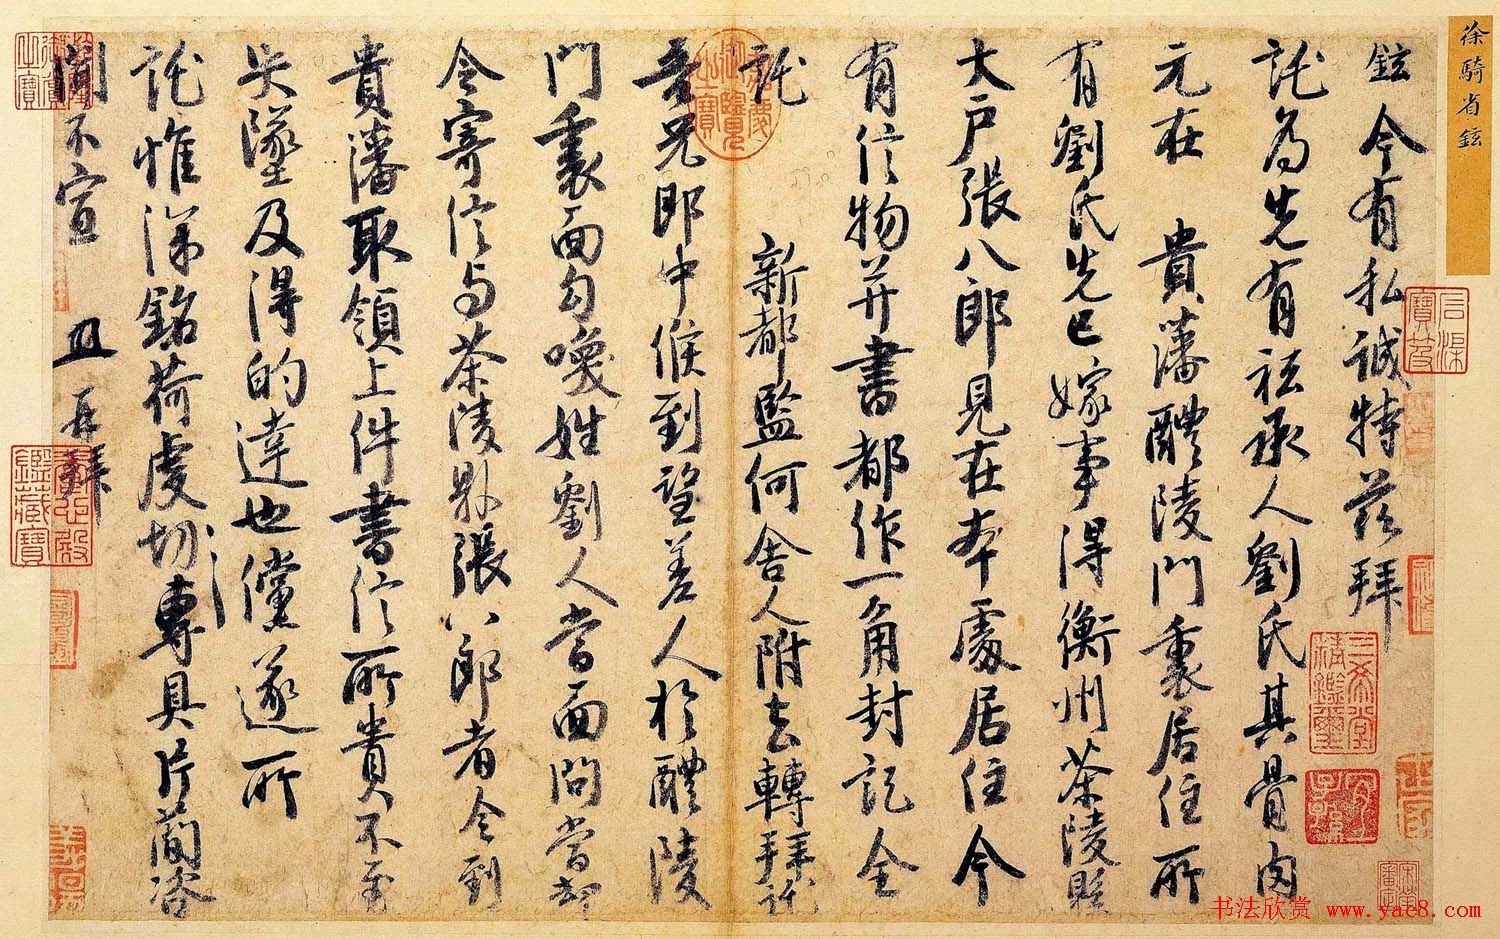 徐騎省鉉
鉉今有私誠特茲拜
託為先有祗承人劉氏其骨肉
元在貴藩醴陵門裏居住所
有劉氏先已嫁事得衡州茶陵縣
大戶張八郎見在本處居住今
有信物并書都作一角封記全
託新都監何舍人附去轉拜託
吾兄郎中候到望差人於醴陵
門裏面勾喚姓劉人當面問當却
令寄信与茶陵縣張八郎者令到
貴藩取領上件書信所貴不至
失墜及得的達也儻遂所
託惟深銘荷虔切專具片簡咨
聞不宣再拜
石渠寶笈
三希堂精鑑璽
宜子孫
嘉慶御覽之寶
乾隆御覽之寶
養心殿鑑藏寶
书法欣赏 www.yac8.com